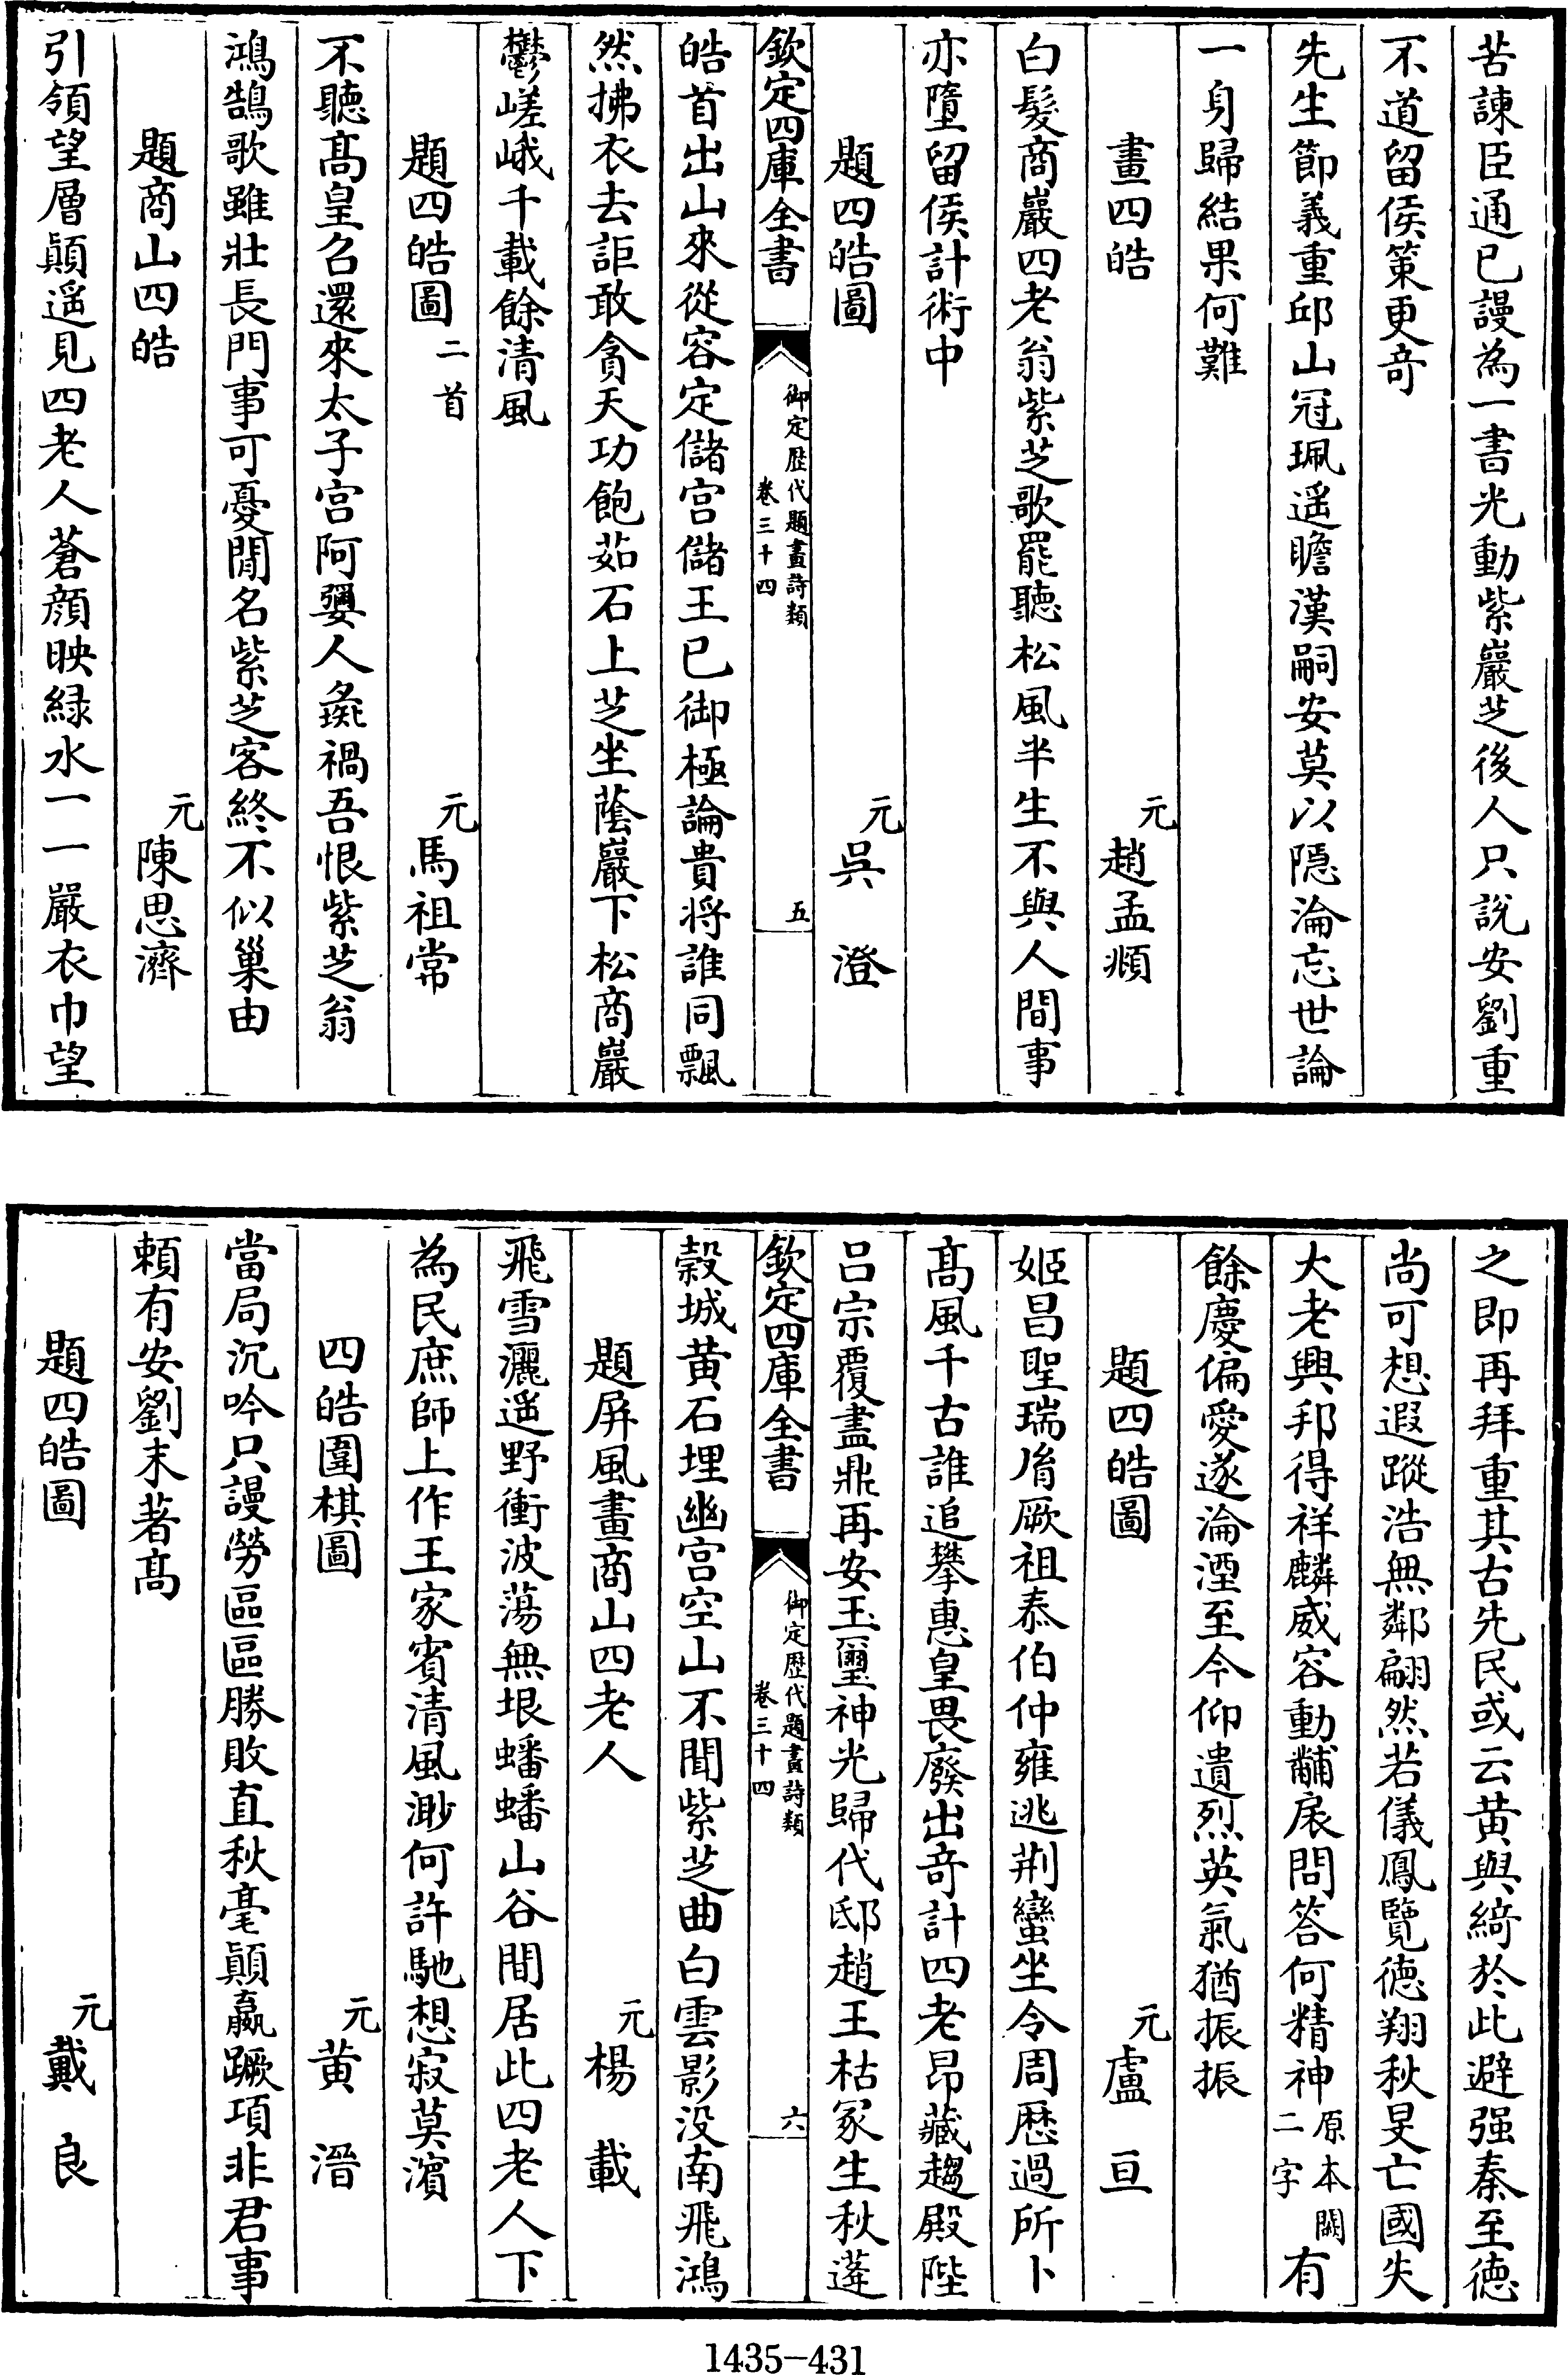 苦諫臣通已謾為一書光動紫巖芝後人只說安劉重
不道留侯策更奇
先生節義重邱山冠珮遥瞻漢嗣安莫以隠淪忘世論
一身歸結果何難
畫四皓
元趙孟頫
白髮商巖四老翁紫芝歌罷聽松風半生不與人間事
亦墮留侯計術中
題四皓圖
元吳澄
欽定四庫全書
御定歴代題畫詩類
卷三十四
五
皓首出山來從容定儲宫儲王已御極論貴將誰同飄
然拂衣去詎敢貪天功飽茹石上芝坐蔭巖下松商巖
鬱嵯峨千載餘清風
題四皓圖二首
元馬祖常
不聽髙皇召還來太子宫阿㜲人彘禍吾恨紫芝翁
鴻鵠歌雖壯長門事可憂聞名紫芝客終不似巢由
題商山四皓
元陳思濟
引領望層顛遥見四老人蒼顔映緑水一一嚴衣巾望
之即再拜重其古先民或云黄與綺於此避强秦至徳
尚可想遐蹤浩無鄰翩然若儀鳳覽徳翔秋旻亡國失
大老興邦得祥麟威容動黼扆問答何精神原本闕二字有
餘慶偏愛遂淪湮至今仰遺烈英氣猶振振
題四皓圖
元盧亘
姬昌聖瑞胥厥祖泰伯仲雍逃荆蠻坐令周厯過所卜
髙風千古誰追攀惠皇畏廢出奇計四老昂藏趨殿陛
吕宗覆盡鼎再安玉璽神光歸代邸趙王枯冢生秋蓬
欽定四庫全書
御定歴代題畫詩類
卷三十四
六
榖城黄石埋幽宫空山不聞紫芝曲白雲影没南飛鴻
題屏風畫商山四老人
元楊載
飛雪灑遥野衝波蕩無垠蟠蟠山谷間居此四老人下
為民庶師上作王家賓清風渺何許馳想寂莫濵
四皓圍棋圖
元黄溍
當局沉吟只謾勞區區勝敗直秋毫顛嬴蹶項非君事
頼有安劉末著髙
題四皓圖
元戴良
1435-431